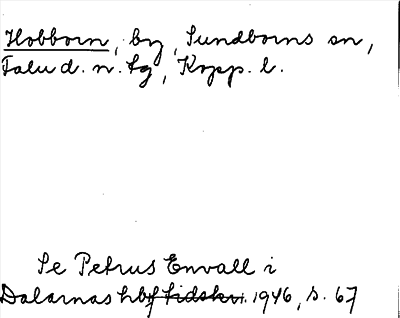 Hobborn, by, Sundborns sn,
Falu d. n. tg, Kopp. l.
Se Petrus Envall i
Dalarnas hbf tidskr. 1946, s. 67